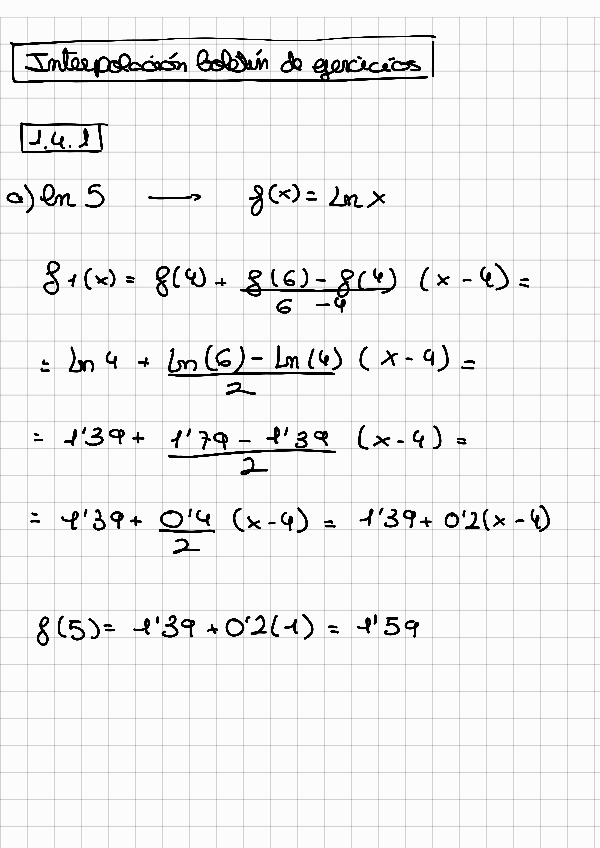 Interpolación boletín de ejercicios
1.4.1
a) ln 5 → f(x) = Ln x
f1(x) = f(4) + f(6) - f(4) / 6 - 4 (x - 4) =
= Ln 4 + Ln(6) - Ln(4) / 2 (x - 4) =
= 1'39 + 1'79 - 1'39 / 2 (x - 4) =
= 1'39 + 0'4 / 2 (x - 4) = 1'39 + 0'2(x - 4)
f(5) = 1'39 + 0'2(1) = 1'59